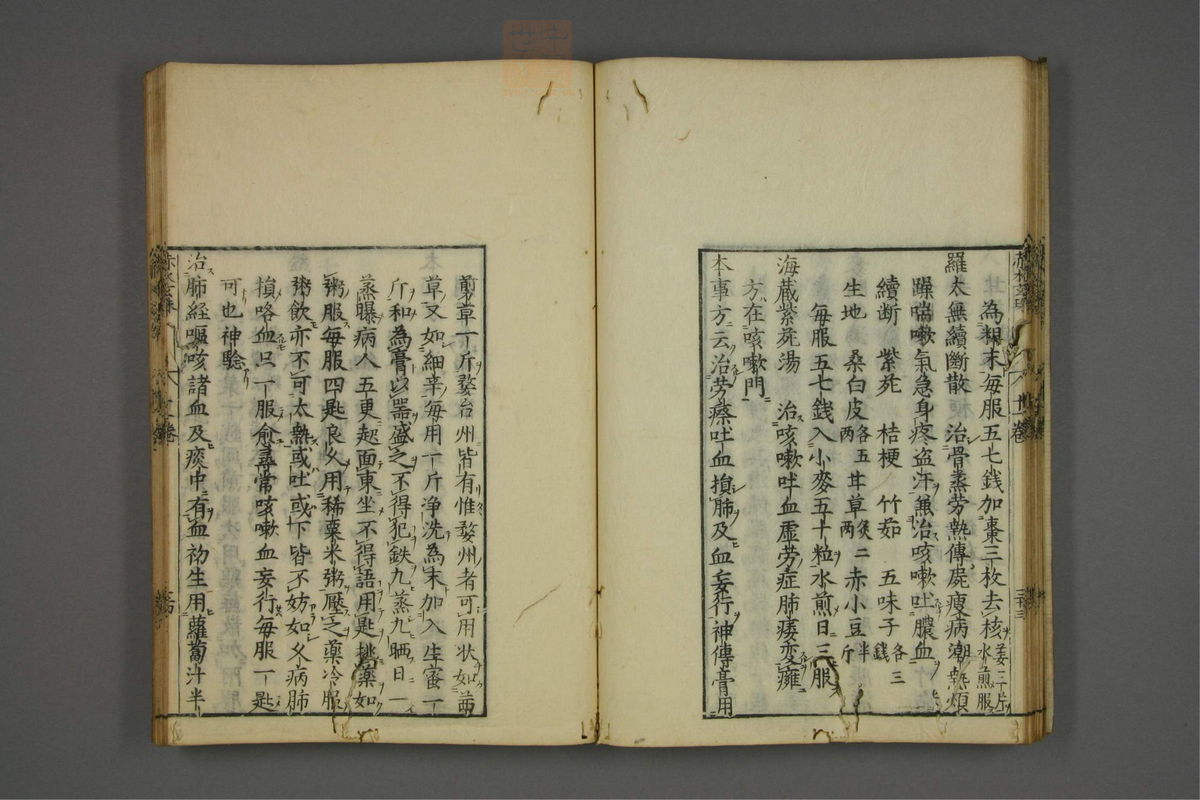 為粗末每服五七錢加棗三枚去核姜三片水煎服
羅太無續斷散 治骨蒸勞熱傳屍瘦病潮熱煩
躁喘嗽氣急身疼盗汗無治咳嗽吐膿血
續断 紫菀 桔梗 竹茹 五味子各三錢
生地 桑白皮各五両 甘草炙二両 赤小豆半斤
每服五七錢入小麥五十粒水煎日三服
海蔵紫菀湯 治咳嗽吐血虚劳症肺痿変癰
方在咳嗽門
本事方云治劳瘵吐血損肺及血妄行神傳膏用
剪草一斤婺台州皆有惟婺州者可用状如茜
草又如細辛每用一斤净洗為末加入生蜜一
斤和為膏以器盛之不得犯鉄九蒸九晒日一
蒸曝病人五更起面東坐不得語用匙挑藥如
粥服每服四匙良久用稀粟米粥壓之藥冷服
粥飲亦不可太熱或吐或下皆不妨如久病肺
損咯血只一服愈尋常咳嗽血妄行每服一匙
可也神驗
治肺経嘔咳諸血及痰中有血初生用蘿蔔汁半